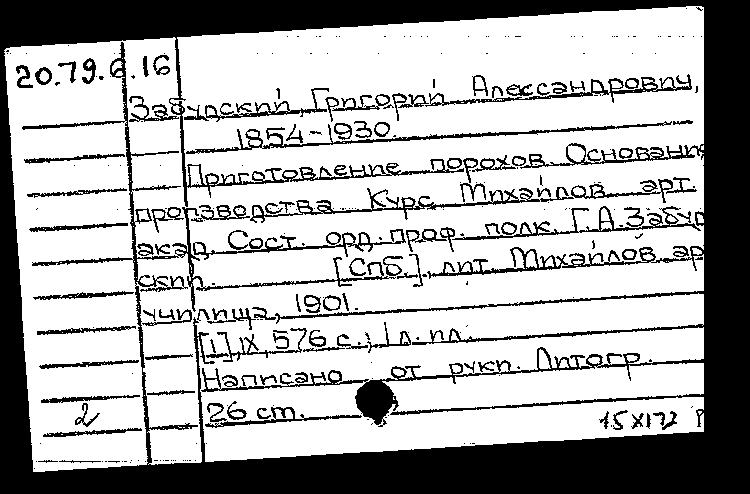 20.79.6.16
Забудский, Григорий Александрович,
1854-1930.
Приготовление порохов. Основания
производства. Курс Михайлов. арт.
акад. Сост. орд. проф. полк. Г.А.Забуд
ский. [Спб.], лит. Михайлов. ар
училища, 1901.
[1], IX, 576 с.; 1 л. пл.
Написано от рукп. Литогр.
26 cm.
2
15 XI 72